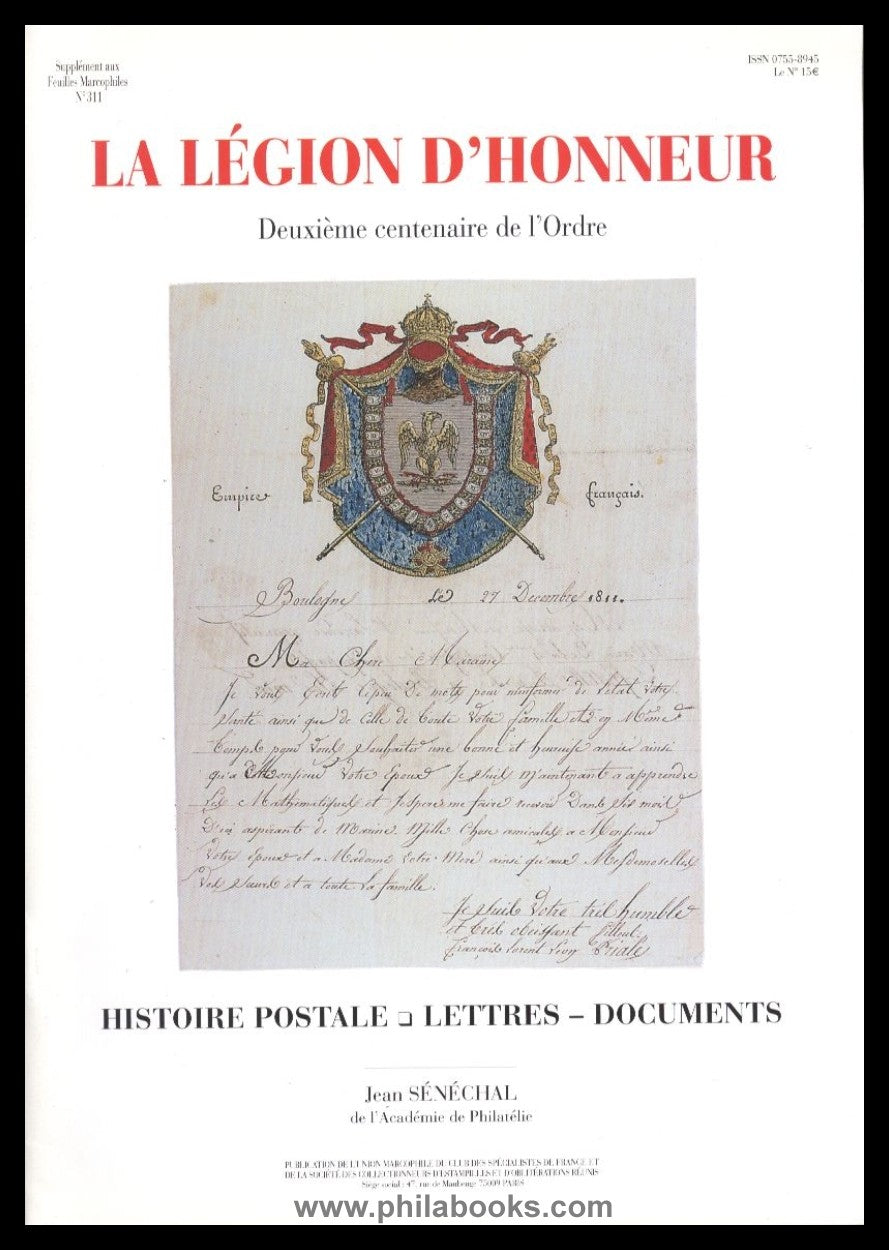 Supplément aux
Feuilles Marcophiles
N° 311
ISSN 0755-8945
Le N° 15€
LA LÉGION D'HONNEUR
Deuxième centenaire de l'Ordre
Empire français.
Boulogne le 27 Decembre 1811.
Ma Chere Maraine
Je vous Ecrit le peu De mots pour m'informer de l'etat votre
santé ainsi que de Celle de toute votre famille et en Même
temps pour vous souhaiter une bonne et heureuse année ainsi
qu'a Monsieur votre Epoux Je suis maintenant a apprendre
les Mathématiques et J'espere me faire recevoir Dans six mois
D'ici aspirants de Marine. Mille Chose amicales a Monsieur
votre Epoux et a Madame votre Mere ainsi qu'aux Mesdemoiselles
vos sœurs et a toute la famille.
Je suis votre trés humble
et trés obeissant filleul
François Lorent Leon Priale
HISTOIRE POSTALE ❏ LETTRES – DOCUMENTS
Jean SÉNÉCHAL
de l'Académie de Philatélie
PUBLICATION DE L'UNION MARCOPHILE DU CLUB DES SPÉCIALISTES DE FRANCE ET
DE LA SOCIÉTÉ DES COLLECTIONNEURS D'ESTAMPILLES ET D'OBLITÉRATIONS RÉUNIS
Siège social : 47, rue de Maubeuge 75009 PARIS
www.philabooks.com